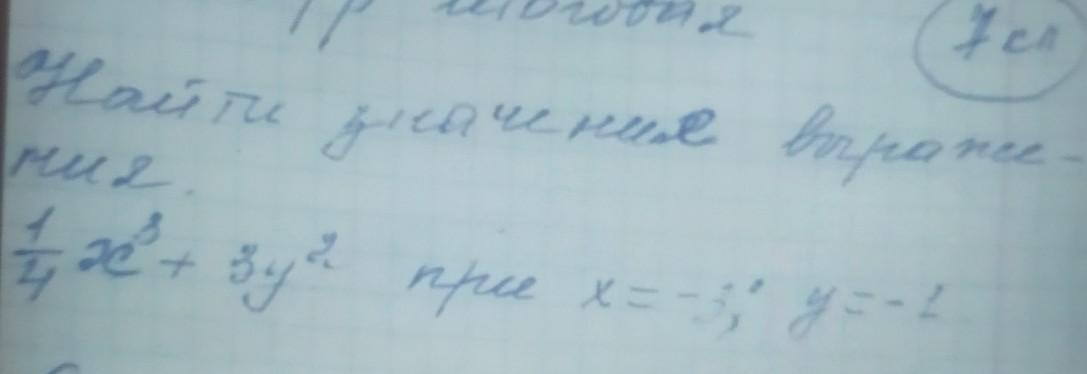 итоговая
7 кл
Найти значение выраже-
ния.
1/4 x³ + 3y² при x = -3; y = -1